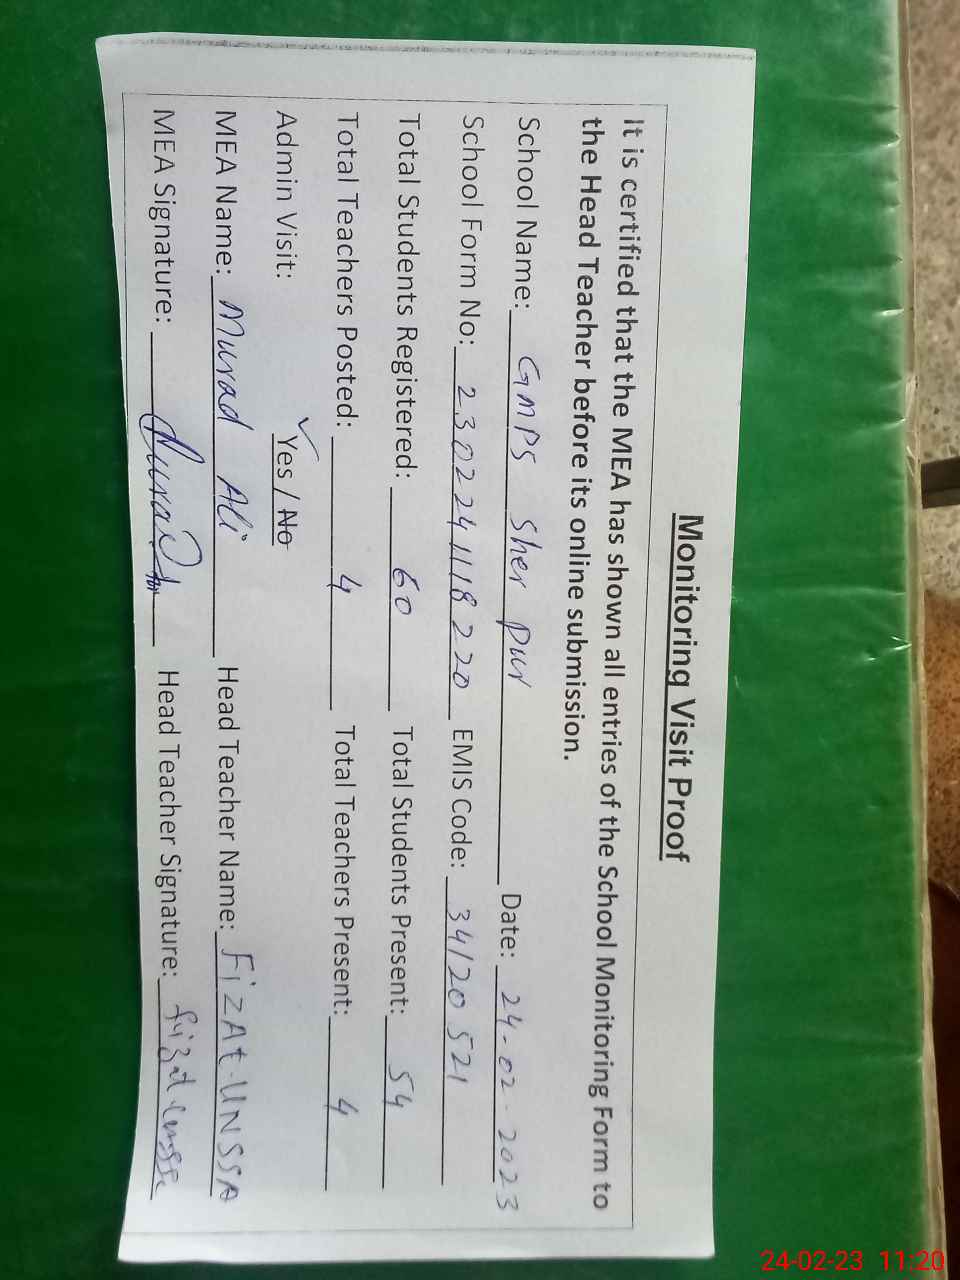 Monitoring Visit Proof
It is certified that the MEA has shown all entries of the School Monitoring Form to
the Head Teacher before its online submission.
School Name: GMPS Sher pur Date: 24-02-2023
School Form No: 2302241118220 EMIS Code: 34120521
Total Students Registered: 60 Total Students Present: 54
Total Teachers Posted: 4 Total Teachers Present: 4
Admin Visit: Yes / No
MEA Name: Murad Ali Head Teacher Name: FizAt-UNSSA
MEA Signature: Murad Head Teacher Signature:
24-02-23 11:20